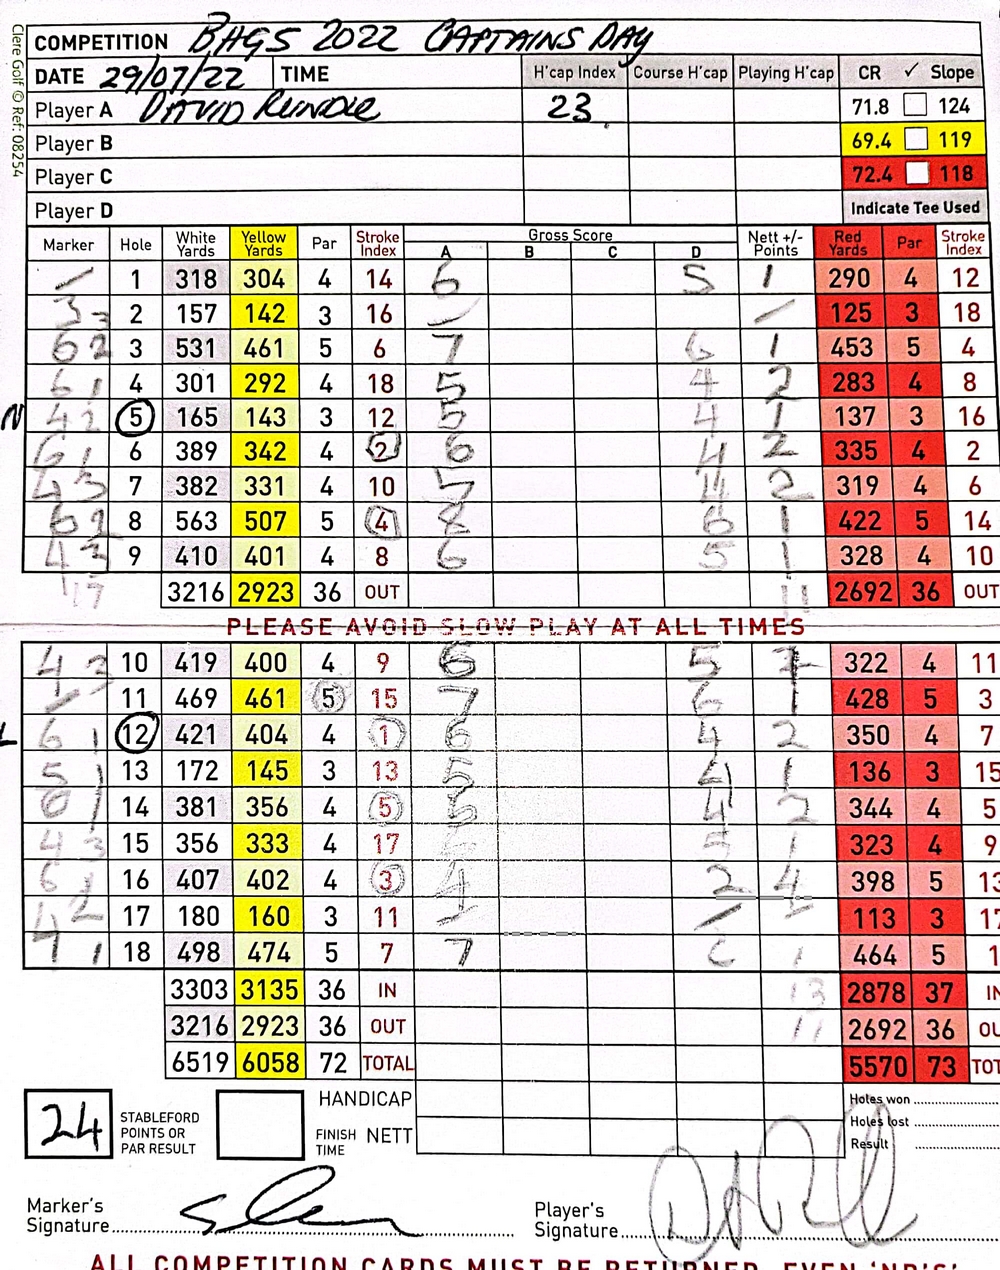 Clere Golf © Ref: 08254
COMPETITION BHGS 2022 CAPTAINS DAY
DATE 29/07/22 TIME H'cap Index Course H'cap Playing H'cap CR ✓ Slope
Player A DAVID RUNDLE 23 71.8 124
Player B 69.4 119
Player C 72.4 118
Player D Indicate Tee Used
Marker Hole White Yards Yellow Yards Par Stroke Index Gross Score A B C D Nett +/- Points Red Yards Par Stroke Index
/ 1 318 304 4 14 6 5 1 290 4 12
3 3 2 157 142 3 16 / / 125 3 18
6 2 3 531 461 5 6 7 6 1 453 5 4
6 1 4 301 292 4 18 5 4 2 283 4 8
N 4 2 5 165 143 3 12 5 4 1 137 3 16
6 1 6 389 342 4 2 6 4 2 335 4 2
4 3 7 382 331 4 10 5 4 2 319 4 6
6 2 8 563 507 5 4 8 6 1 422 5 14
4 3 9 410 401 4 8 6 5 1 328 4 10
17 3216 2923 36 OUT 11 2692 36 OUT
PLEASE AVOID SLOW PLAY AT ALL TIMES
4 3 10 419 400 4 9 6 5 322 4 11
/ 11 469 461 5 15 7 6 1 428 5 3
L 6 1 12 421 404 4 1 6 4 2 350 4 7
5 1 13 172 145 3 13 5 4 1 136 3 15
6 1 14 381 356 4 5 5 4 2 344 4 5
4 3 15 356 333 4 17 5 1 323 4 9
6 1 16 407 402 4 3 4 2 4 398 5 13
4 2 17 180 160 3 11 / / 113 3 17
1 18 498 474 5 7 7 1 464 5 1
3303 3135 36 IN 13 2878 37 IN
3216 2923 36 OUT 11 2692 36 OU
6519 6058 72 TOTAL 5570 73 TOT
24 STABLEFORD POINTS OR PAR RESULT HANDICAP Holes won
FINISH TIME NETT Holes lost
Result
Marker's Signature Player's Signature
ALL COMPETITION CARDS MUST BE RETURNED, EVEN 'NR'S'